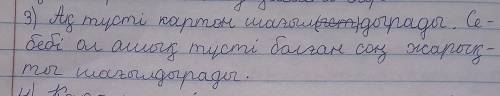 3) Ақ түсті картон шағылдырады. Се-
бебі ол ашық түсті болған соң жарық-
ты шағылдырады.